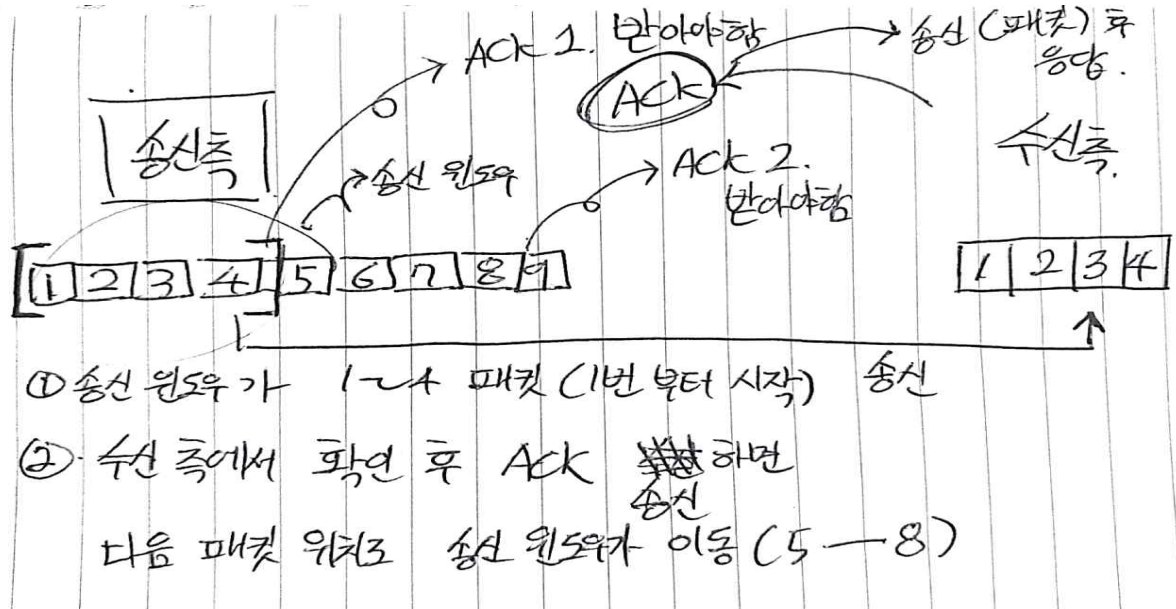 ACK 1. 받아야함
송신 (패킷) 후
응답.
ACK
송신측
수신측.
송신 윈도우
ACK 2.
받아야함
1 2 3 4 5 6 7 8 9
1 2 3 4
① 송신 윈도우가 1~4 패킷 (1번 부터 시작) 송신
② 수신 측에서 확인 후 ACK 하면
송신
다음 패킷 위치로 송신 윈도우가 이동 (5—8)